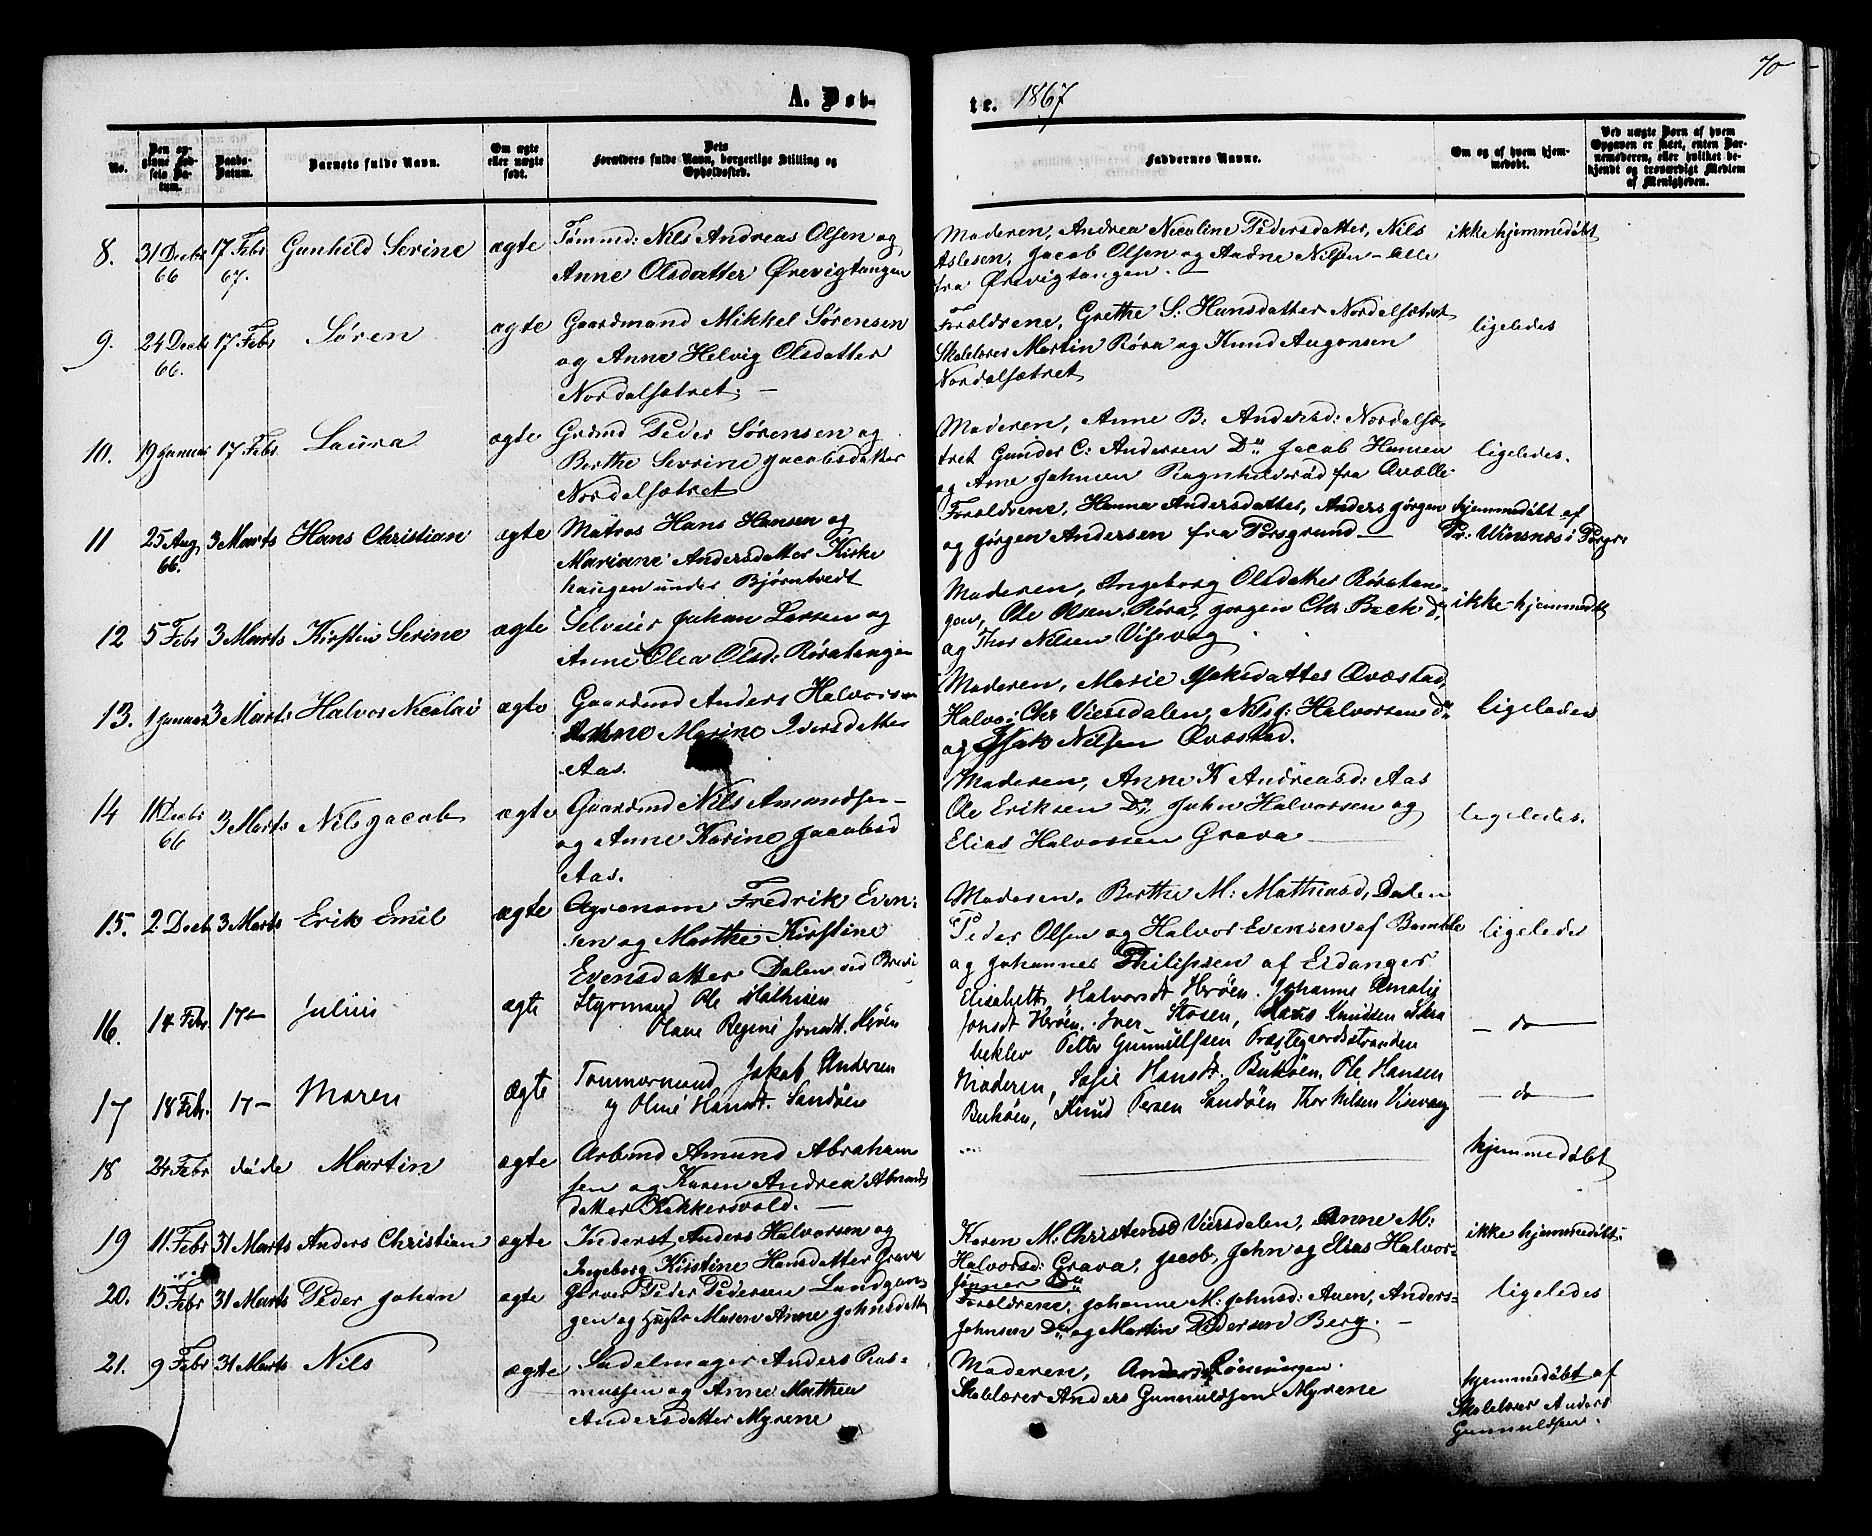 70
A. Døb-
te. 1867
No.
Den opgivne Fødsels Datum.
Daabs-Datum.
Barnets fulde Navn.
Om ægte eller uægte født.
Dets Forældres fulde Navn, borgerlige Stilling og Opholdssted.
Faddernes Navne.
Om og af hvem hjemmedøbt.
Ved uægte Børn af hvem Opgaven er skeet, enten Barnemoderen, eller hvilket bekjendt og troværdigt Medlem af Menigheden.
8. 31 Decbr 66 17 Febr 67. Gunhild Serine ægte
Tømmd: Nils Andreas Olsen og
Anne Olsdatter Ørevigtangen
Moderen, Andrea Nicoline Pedersdatter, Nils
Aslesen, Jacob Olsen og Andne Nilsen - alle
fra Ørevigtangen. -
ikke hjemmedøbt
9. 24 Decbr 66. 17 Febr Søren ægte
Gaardmand Mikkel Sørensen
og Anne Helvig Olsdatter
Nordalsætret. -
Forældrene, Grethe S: Hansdatter Nordalsætret
Skolelærer Martin Røra og Knud Augonsen
Nordalsætret
ligeledes
10. 19 Januar 17 Febr Laura ægte
Grdmd Peder Sørensen og
Berthe Sevrine Jacobsdatter
Nordalsætret
Moderen, Anne B: Andersd: Nordalsæ-
tret Gunder C: Andersen Do Jacob Hansen
og Arne Johnsen Ragnhildsrød fra Qvelle
ligeledes.
11 25 Aug 66. 3 Marts Hans Christian ægte
Matros Hans Hansen og
Mariane Andersdatter Kirke
haugen under Bjørntvedt
Forældrene, Hanna Andersdatter, Anders Jørgen
og Jørgen Andersen fra Porsgrund -
hjemmedøbt af
Pr: Winsnes i Porgr
12 5 Febr 3 Marts Kirstin Serine ægte
Selveier Johan Larsen og
Anne Olea Olsd: Røratangen
Moderen, Ingeborg Olsdatter Røratan-
gen, Ole Olsen Røra, Jørgen Chr Bech do
og Thor Nilsen Vissevag
ikke hjemmedøbt
13. 1 Januar 3 Marts Halvor Nicolai ægte
Gaardmd Anders Halvorsen
Anne Marine Iversdatter
Aas.
Moderen, Marie Isaksdatter Qvæstad,
Halvor Chr Viersdalen, Nils J: Halvorsen do
og Isak Nilsen Qvæstad.
ligeledes
14 11 Decbr 66 3 Marts Nils Jacob ægte
Gaardmd Nils Amundsen -
og Anne Karine Jacobsd
Aas.
Moderen, Anne K Andreasd: Aas
Ole Eriksen Do, John Halvorsen og
Elias Halvorsen Grava
ligeledes.
15. 2 Decbr 3 Marts Erik Emil ægte
Agronom Fredrik Even-
sen og Marthe Kirstine
Evensdatter Dalen ved Brevi
Moderen. Berthe M: Mathiasd, Dalen
Peder Olsen og Halvor Evensen af Bamble
og Johannes Philipsen af Eidanger
ligeledes
16. 14 Febr 17 - Julius ægte
Styrmand Ole Mathisen
Olava Regine Jonsdt. Herøen
Elisabeth Halvorsdt Herøen. Johanne Amalie
Jonsdt Herøen. Iver Stosen, Hans Knudsen Skra
beklev Petter Gunnulfsen Præstegaardsstranden
- do -
17 18 Febr. 17 - Maren Ægte
Tømmermand Jakob Andersen
og Oline Hansdt. Sandøen
Moderen, Sofie Hansdt. Bukøen. Ole Hansen
Bukøen, Knud Persen Sandøen Thor Nilsen Vissevaag
- do -
18 24 Febr døde Martin ægte
Arbmd Amund Abraham
sen og Karen Andrea Amunds
datter Blekkersvold. -
hjemmedøbt
19 11. Febr 31 Marts Anders Christian ægte
Inderst Anders Halvorsen og
Ingeborg Kirstine Hansdatter Grava
Karen M: Christensd Viersdalen, Anne M:
Halvorsd: Grava, Jacob, John og Elias Halvor-
sønner Do
ikke hjemmedøbt
20. 15 Febr 31 Marts Peder Johan ægte
Garver Peder Pedersen Lundgan-
gen og Hustr Maren Anne Johnsdatter
Forældrene, Johanne M: Johnsd: Auen, Anders
Johnsen Do og Martin Pedersen Berg. -
ligeledes
21. 9 Febr 31 Marts Nils ægte
Sadelmager Anders Ras-
mussen og Anne Mathea
Andersdatter Myrene
Moderen, Anders Rønningen.
Skolelærer Anders Gunnuldsen Myrene
hjemmedøbt af
Skolelærer Anders
Gunnuldsen.